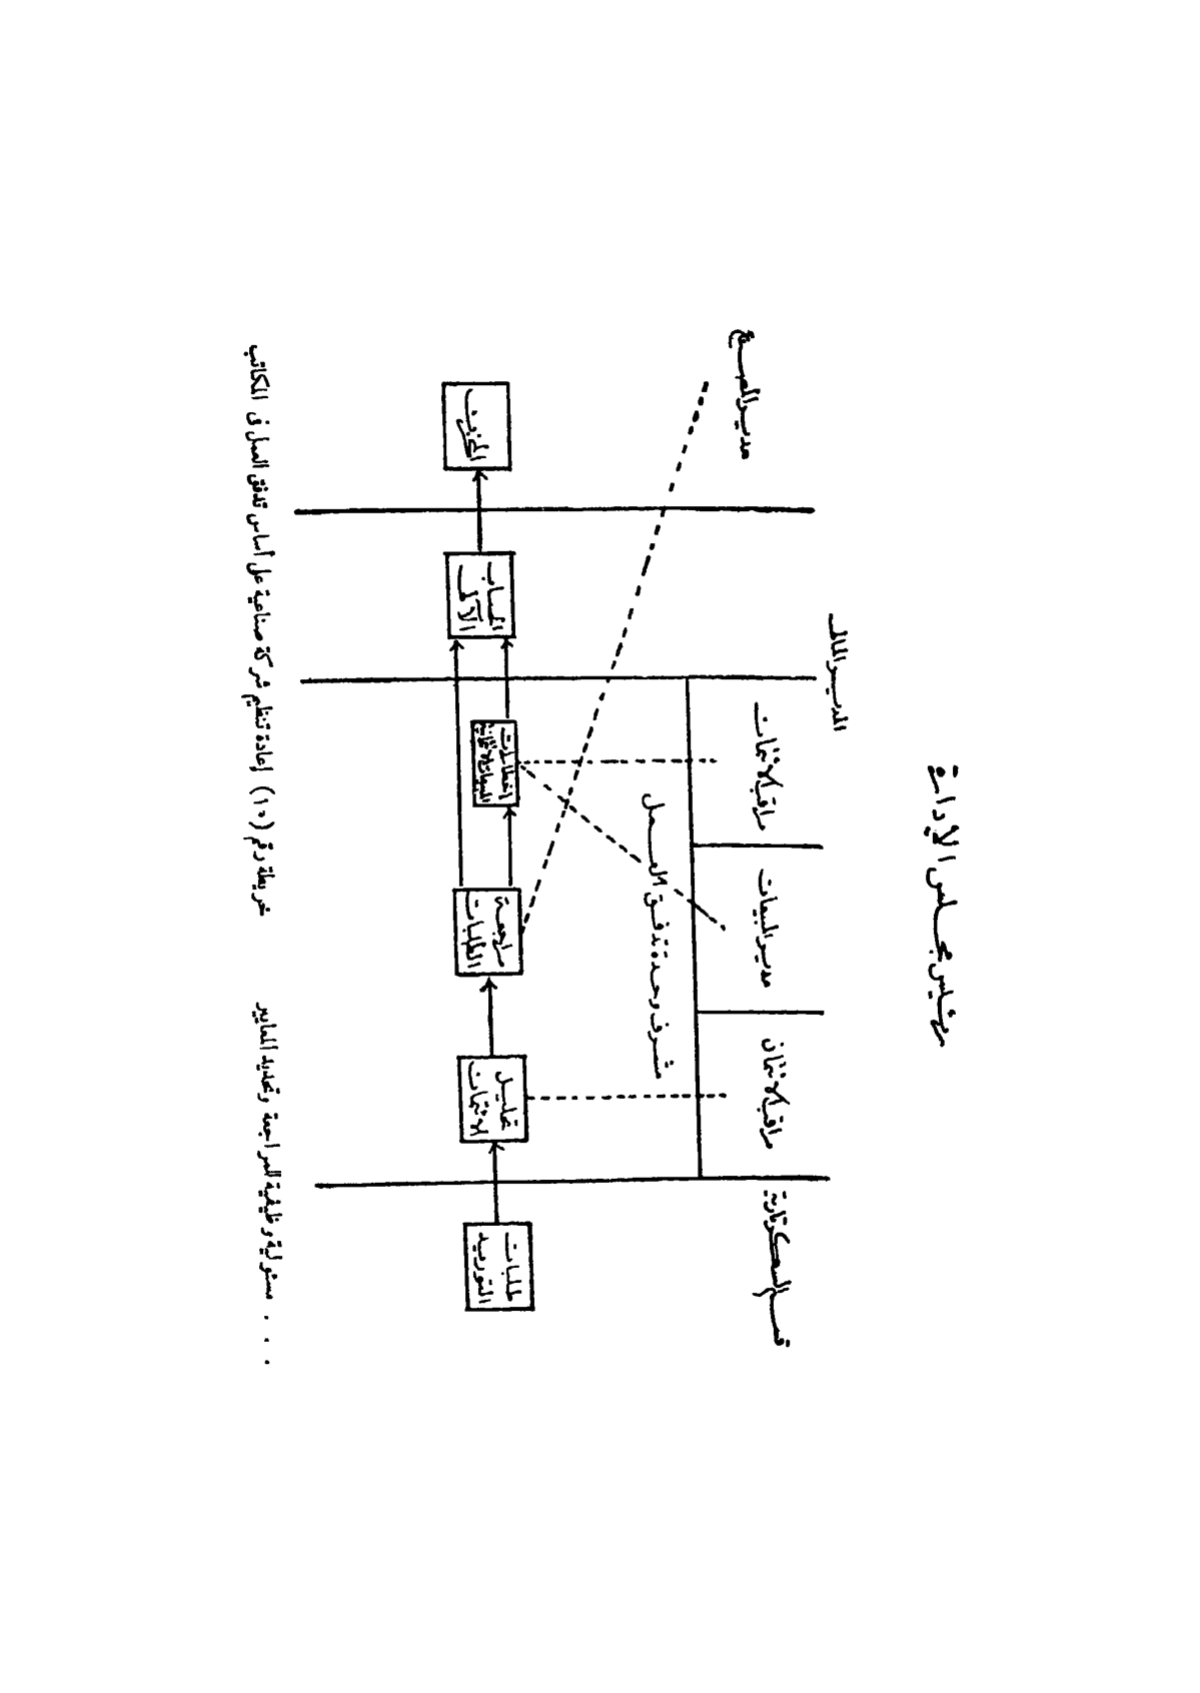 رئيس مجلس الإدارة
المدير المالى
قسم السكرتارية
مراقب الائتمان
مدير المبيعات
مراقب الائتمان
مدير المصنع
مشرف وحدة تدفق العمل
طلبات
التوريد
تحليل
الائتمان
مراجعة
الطلبات
الحساب
الآلى
المخزن
خريطة رقم (١٥) إعادة تنظيم شركة صناعية على أساس تدفق العمل فى المكاتب
. . . مسئولية وظيفية للمراجعة وتحديد المعايير